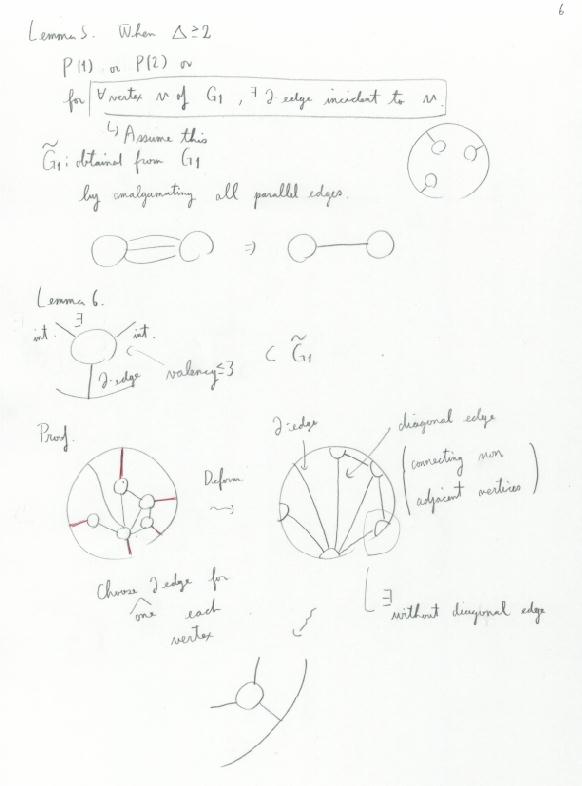 6
Lemma 5. When Δ≥2
P(1) or P(2) or
for ∀vertex v of G₁, ∃ ∂-edge incident to v.
↳ Assume this
G̃₁: obtained from G₁
by amalgamating all parallel edges.
⇒
Lemma 6.
∃
int. int.
∂-edge
valency≤3
⊂ G̃₁
Proof.
Deform
∂-edge
diagonal edge
(connecting non
adjacent vertices)
Choose ∂edge for
one each
vertex
∃
without diagonal edge